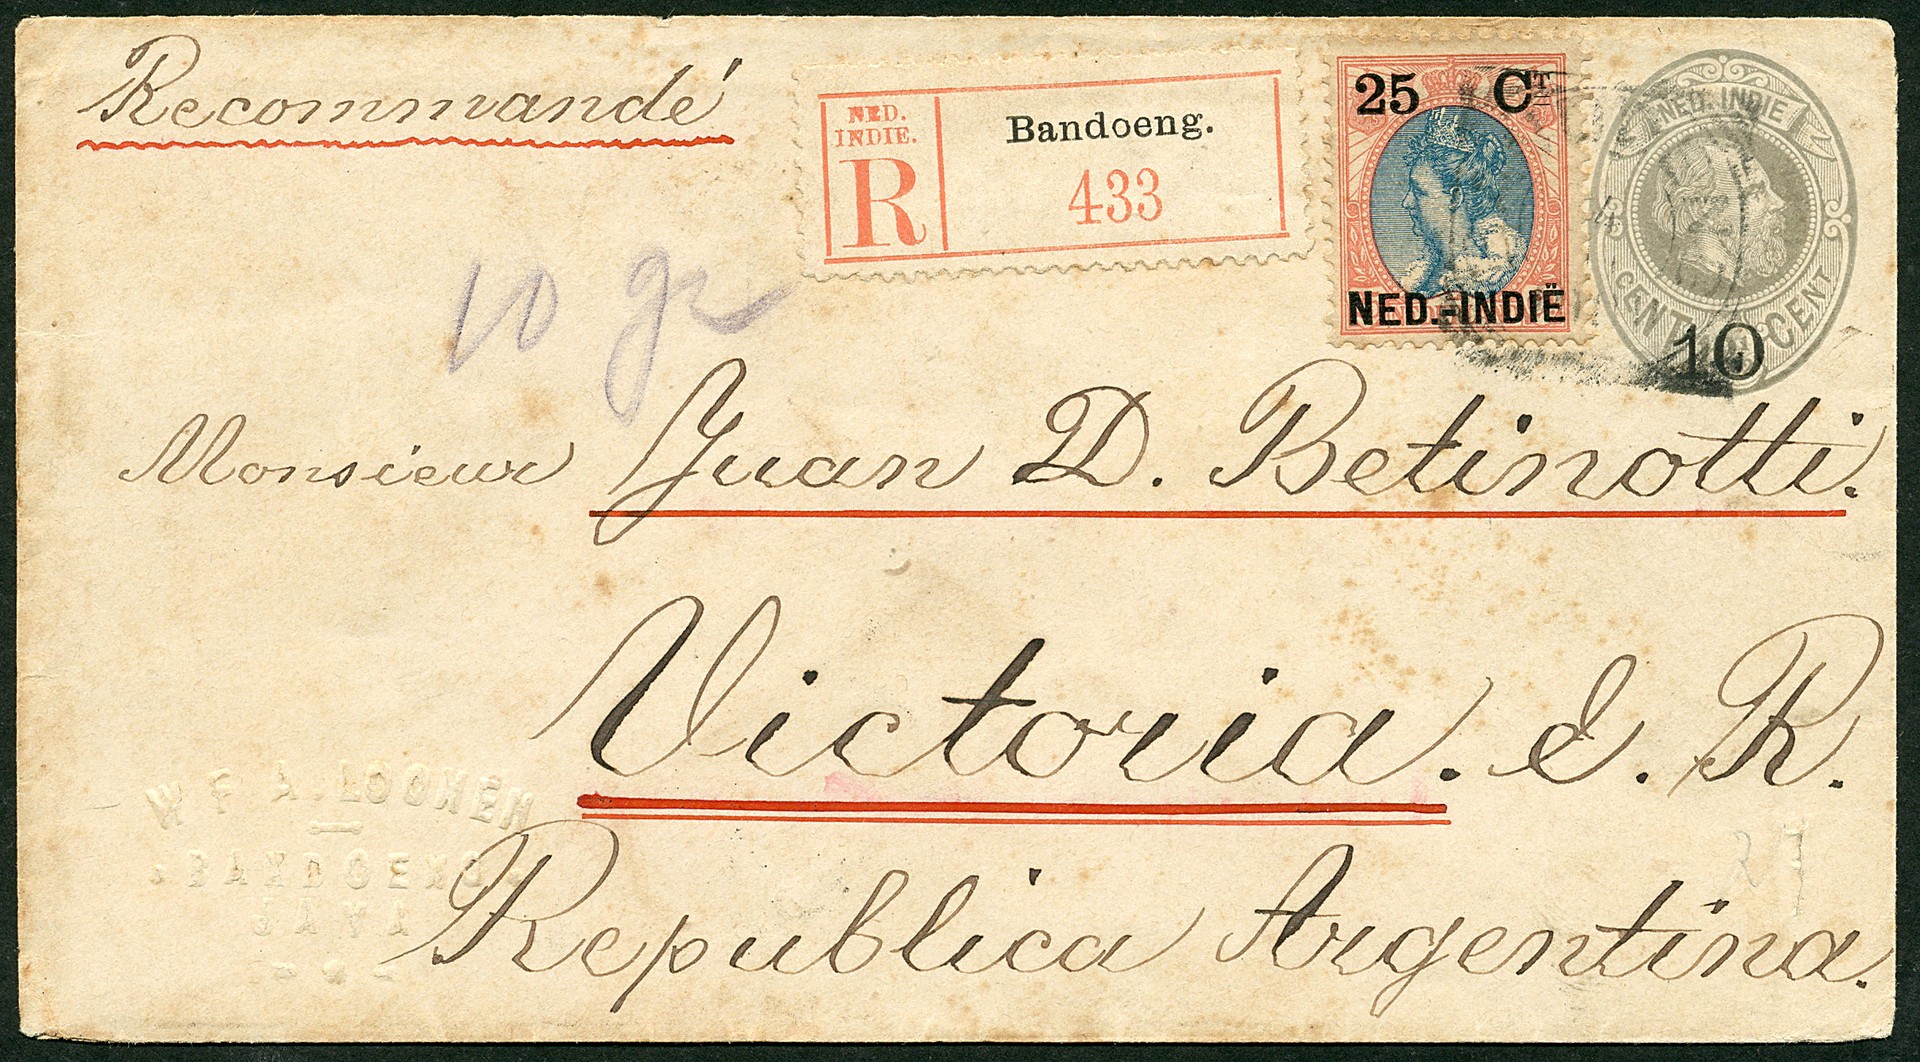 Recommandé
NED.
INDIE.
R
Bandoeng.
433
25 CT
NED.-INDIË
NED. INDIE
CENT
CENT
10
10 gr
Monsieur Juan D. Betinotti.
Victoria. E. R.
Republica Argentina.
W F A. LOONEN
BANDOENG
JAVA